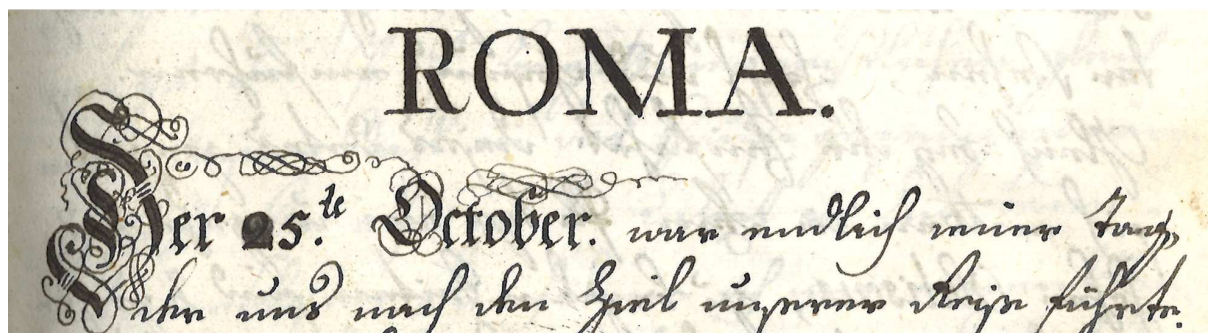 ROMA.
Der 25.te October. war endlich jener Tag,
der uns nach den Ziel unserer Reise führte.